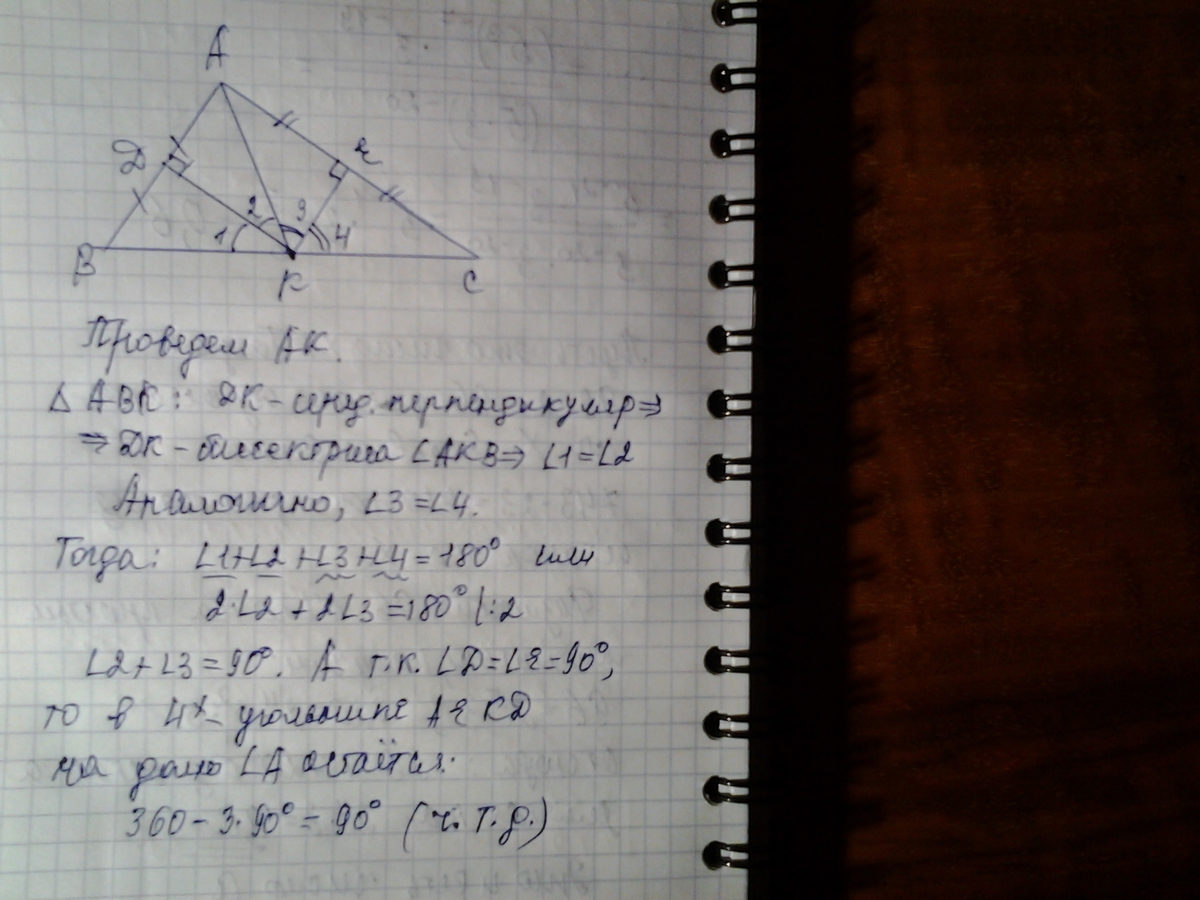 А
Д
Е
2
3
1
4
В
К
С
Проведем АК.
△ АВК: ДК – серед. перпендикуляр ⇒
⇒ ДК – биссектриса ∠АКВ ⇒ ∠1=∠2
Аналогично, ∠3=∠4.
Тогда: ∠1+∠2+∠3+∠4=180° или
2·∠2 + 2∠3 = 180° |:2
∠2+∠3=90°. А т.к. ∠Д=∠Е=90°,
то в 4х-угольнике АЕКД
на долю ∠А остаётся:
360 – 3·90° = 90° (ч.т.д.)